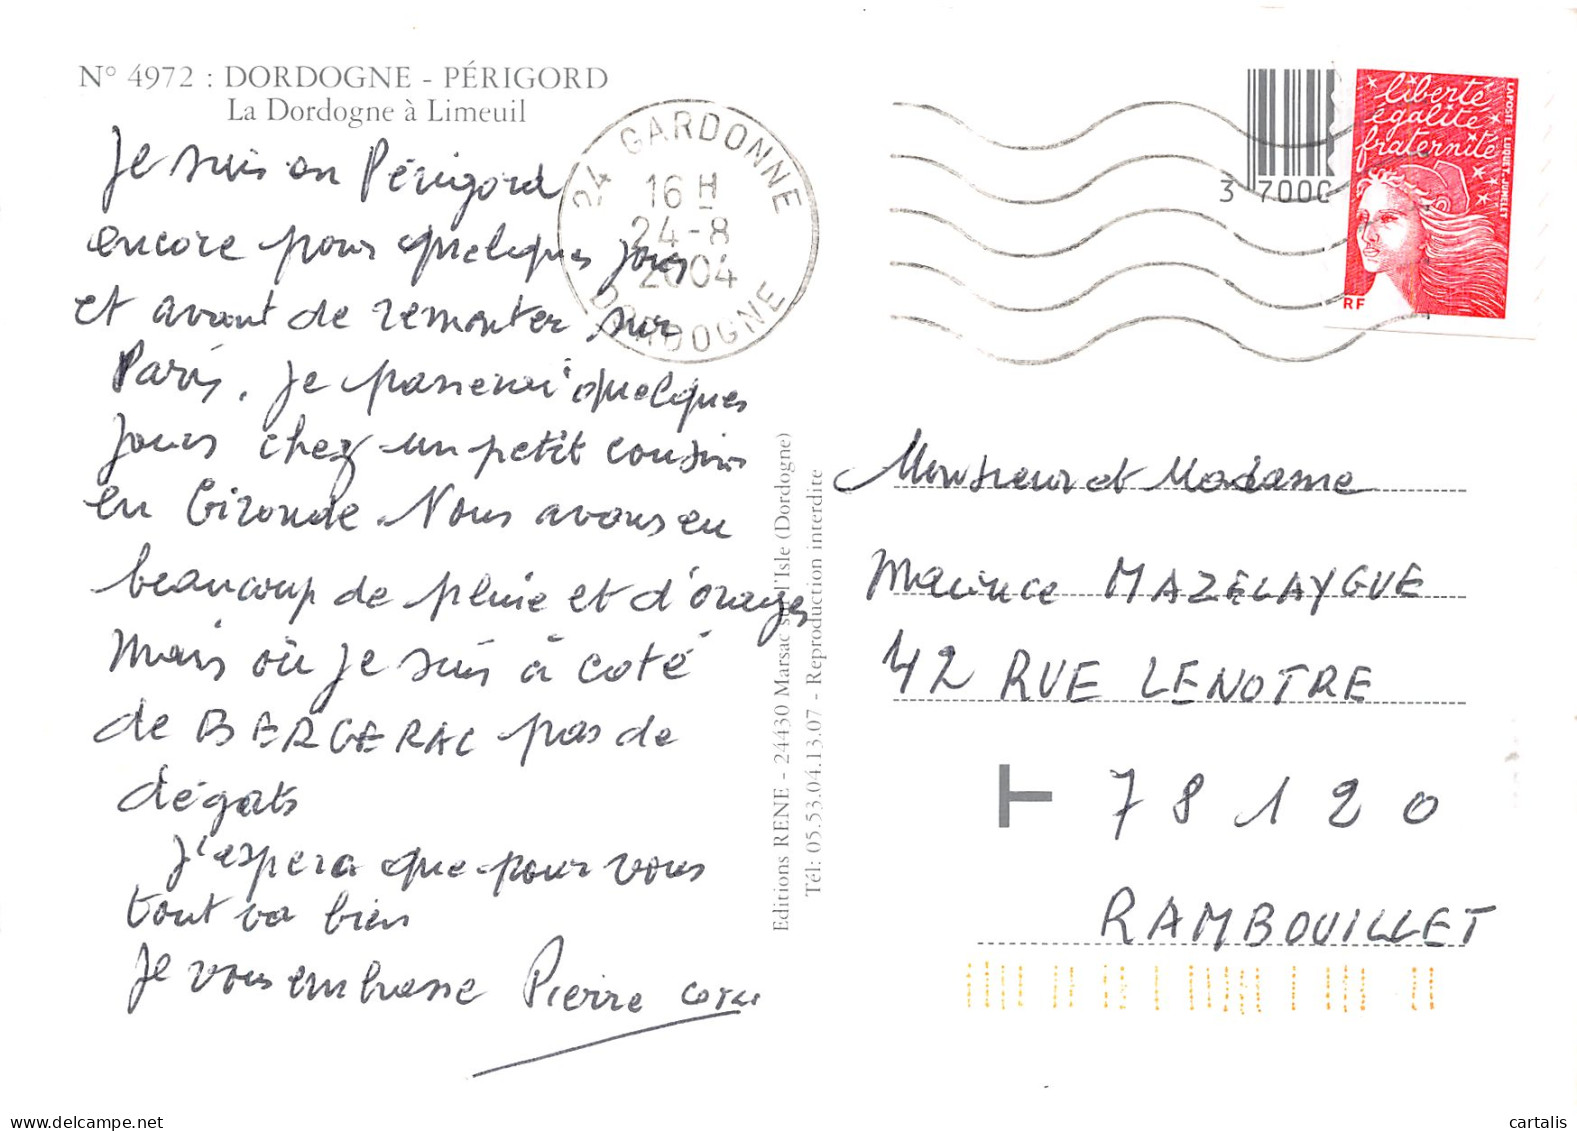 N° 4972 : DORDOGNE - PÉRIGORD
La Dordogne à Limeuil
Je suis en Périgord
encore pour quelques jours
et avant de remonter sur
Paris, je passerai quelques
jours chez un petit cousin
en Gironde. Nous avons eu
beaucoup de pluie et d'orages
mais où je suis à coté
de BERGERAC pas de
dégats
J'espera que pour vous
tout va bien
Je vous embrasse Pierre
Editions RENE - 24430 Marsac sur l'Isle (Dordogne)
Tél: 05.53.04.13.07 - Reproduction interdite
24 GARDONNE
16 H
24-8
2004
DORDOGNE
3 700C
liberté
égalité
fraternité
LAPOSTE LUQUET-JUMELET
RF
Monsieur et Madame
Maurice MAZELAYGUE
42 RUE LENOTRE
T 78120
RAMBOUILLET
cartalis